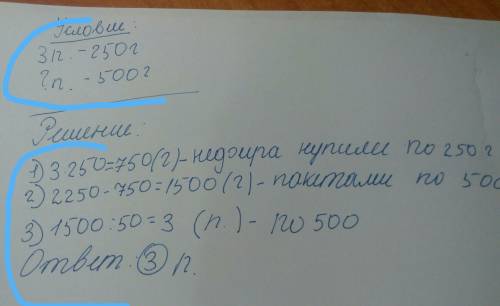 Условие:
3п. - 250г
?п. - 500г
Решение:
1) 3·250=750(г) - инжира купили по 250г
2) 2250-750=1500(г) - пакетами по 500
3) 1500:50=3 (п.) - по 500
Ответ: 3 п.